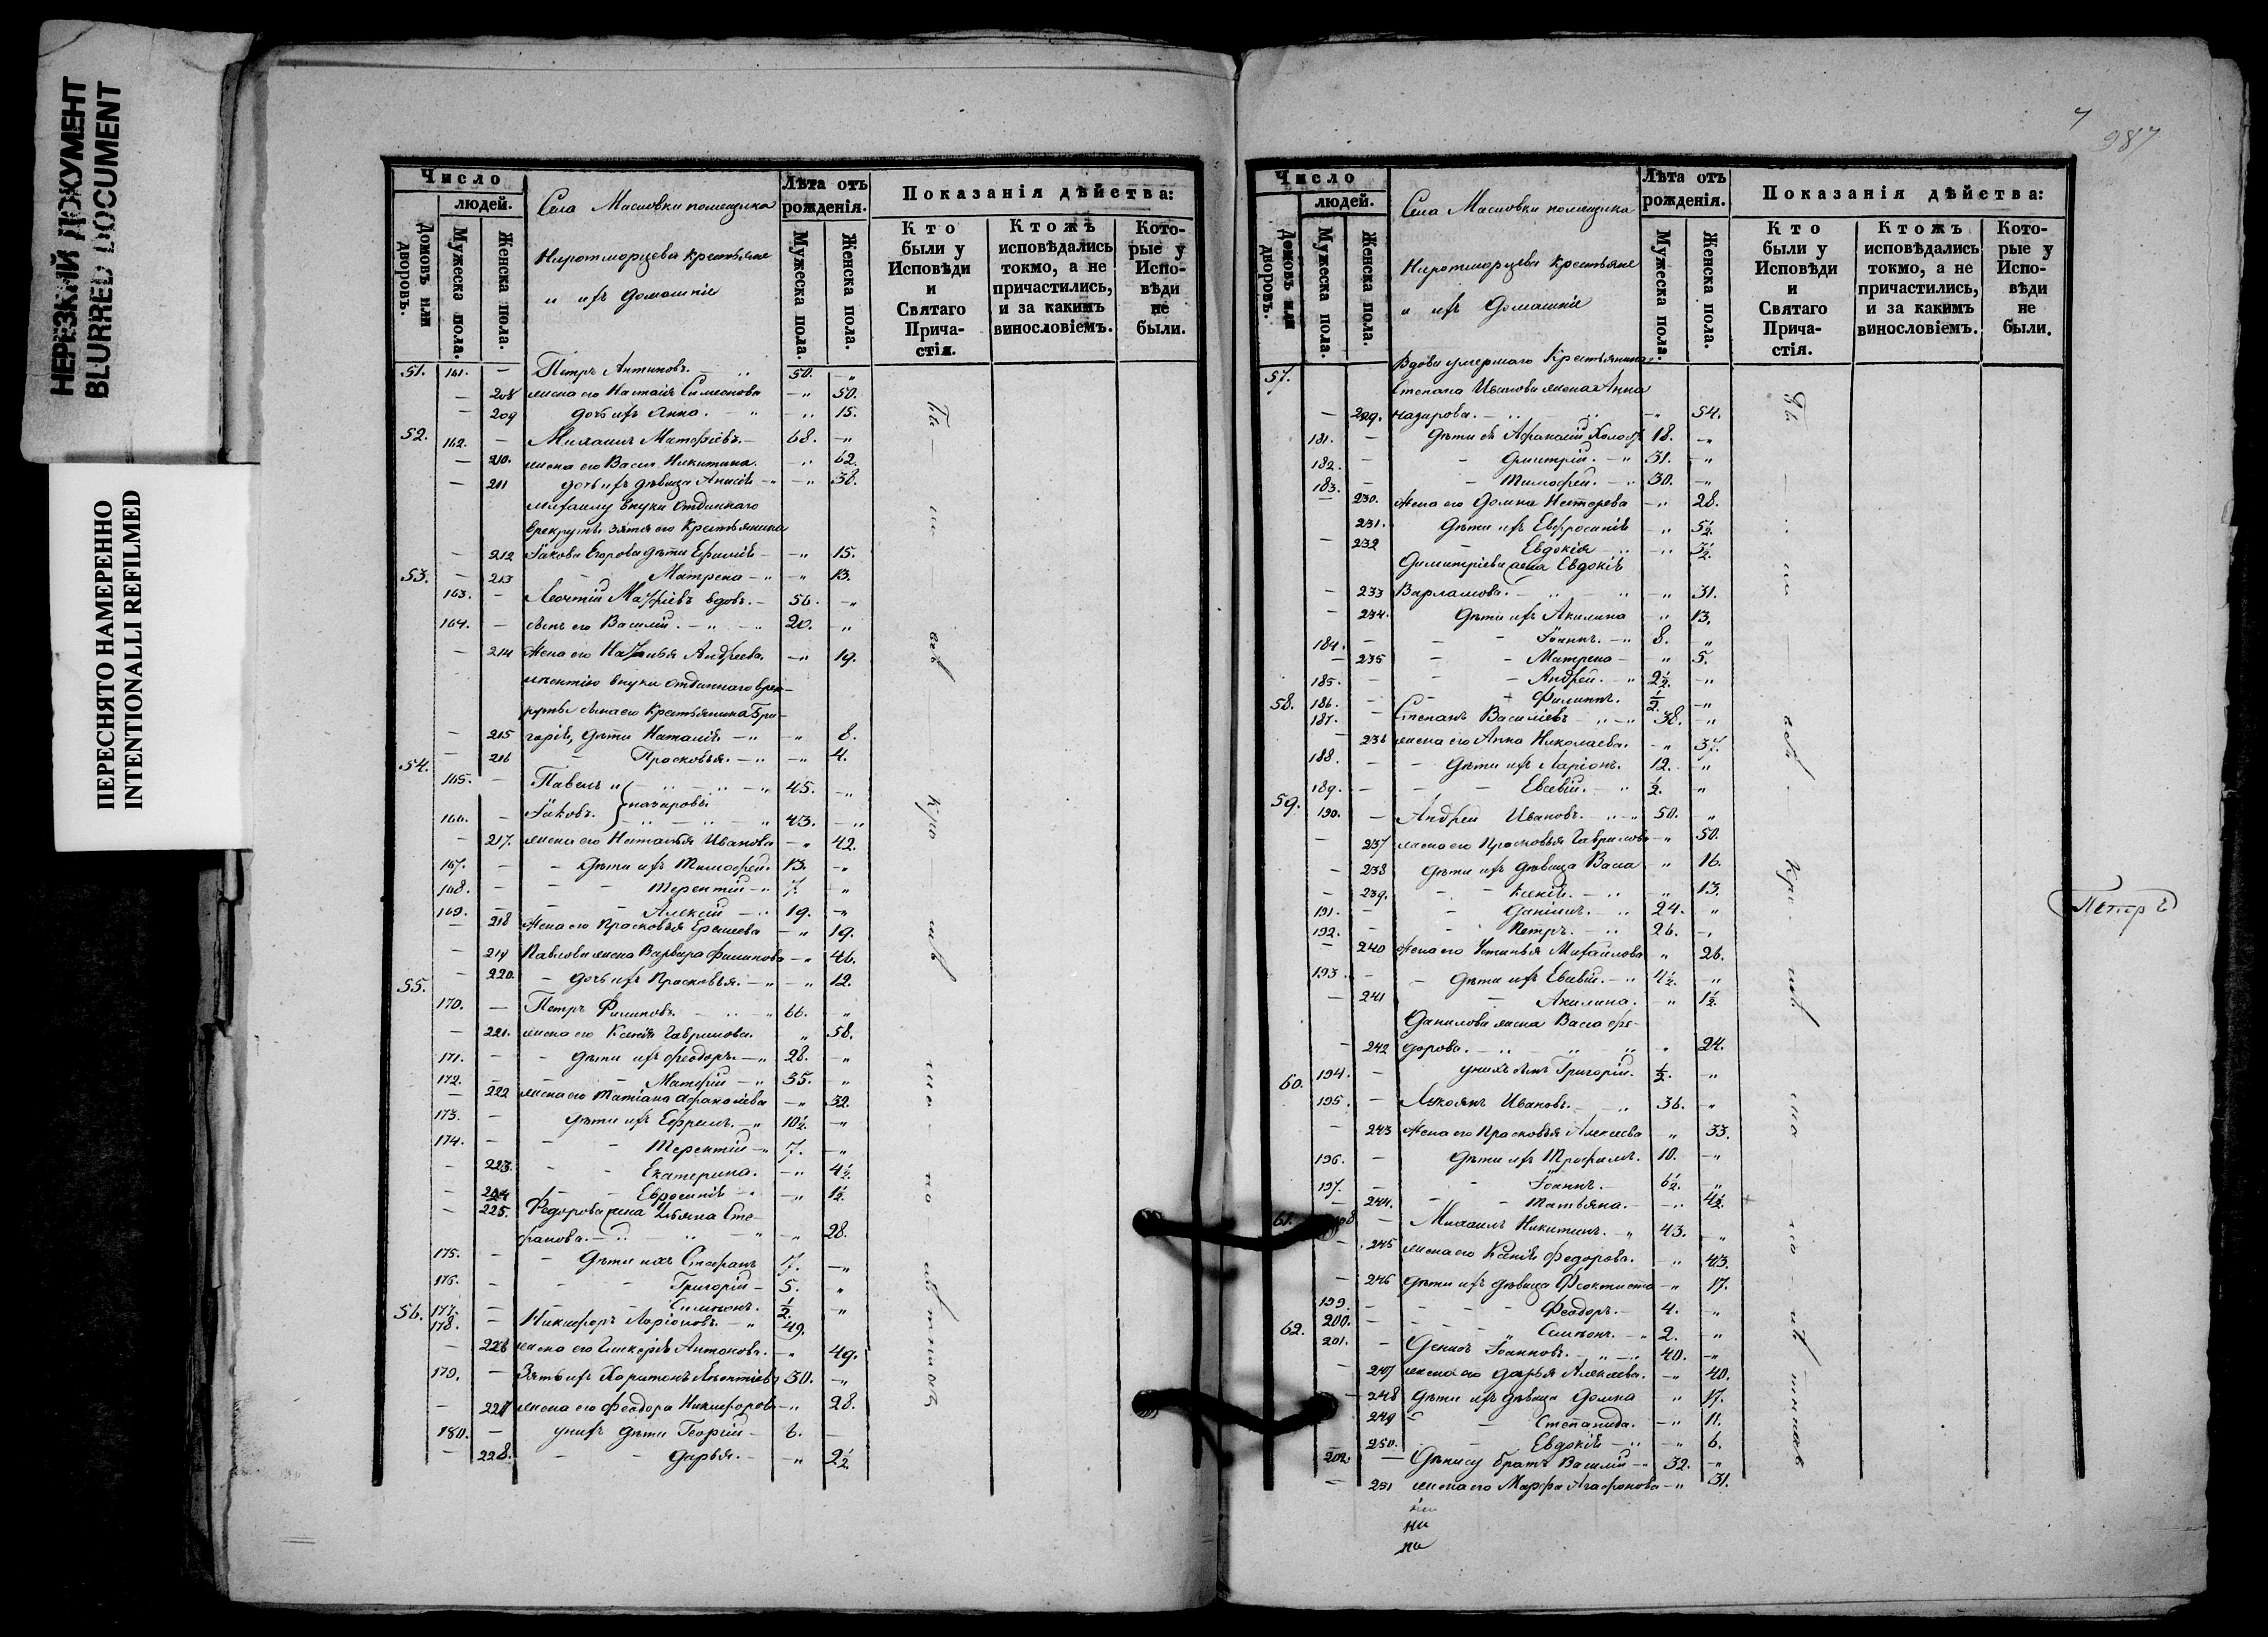 НЕРЕЗКИЙ ДОКУМЕНТ
BLURRED DOCUMENT
ПЕРЕСНЯТО НАМЕРЕННО
INTENTIONALLI REFILMED
Число
людей.
Домовъ или дворовъ.
Мужеска пола.
Женска пола.
Села Масловки помещика
крестьяне
и ихъ домашніе
Лѣта отъ рожденія.
Мужеска пола.
Женска пола.
Показанія дѣйства:
Кто были у Исповѣди и Святаго Прича-стія.
Ктожъ исповѣдались токмо, а не причастились, и за какимъ винословіемъ.
Кото-рые у Испо-вѣди не были.
51. 161. — Петръ Антиповъ. 50. „
— 208 жена его Симеонова — „ 50.
— 209 дочь ихъ Анна. — „ 15.
52. 162. — Михаилъ 68. — „
— 210. жена его Васса Никитина. — „ 62.
— 211 дочь ихъ девица Анисія — „ 38.
Михаилу внуки отданнаго
врекруты зятя его крестьянина
— 212 Іакова Егорова дѣти Ефимія — „ 15.
53. — 213 Матрена — „ 13.
163. — Леонтій вдовъ. 56. — „
164. — сынъ его Василій. 20. „
— 214 Жена его Наталья Андреева. — „ 19.
внуки отданнаго врек-
руты сына его Крестьянина Гри-
— 215 горія, дѣти Наталія — „ 8.
54. — 216 Прасковья. — „ 4.
165. — Павелъ 45. — „
166. — Іаковъ. } назаровы 43. — „
— 217. жена его Наталья Иванова — „ 42.
167. — дѣти ихъ Тимофей. 13. — „
168. — Терентій — 7. „
169. — Алексій 19. — „
— 218 Жена его Прасковья — „ 19.
— 219 Павлова жена Варвара Филипова — „ 46.
55. — 220. дочь ихъ Прасковья. — „ 12.
170. — Петръ Филиповъ. 66. „
— 221. жена его Ксенія Гаврилова. „ 58.
171. — дѣти ихъ Феодоръ. — 28. — „
172. — 35. „
— 222 жена его Татіана — „ 32.
173. — дѣти ихъ Ефремъ. — 10½. — „
174. — Терентій — 7. — „
— 223. Екатерина. — „ 4½.
— 224 Евросинія — „ 1½.
— 225. Федорова жена Ульяна Сте-
фанова. — „ 28.
175. — дѣти ихъ Стефанъ 7. — „
176. — Григорій — 5. „
56. 177. — Симеонъ. ½. — „
178. — Никифоръ Ларіоновъ. — 49.
— 226 жена его Гликерія Антонова. — „ 49.
179. — Зять ихъ Харитонъ Леонтіевъ 30. — „
— 227 жена его Феодора Никифорова — „ 28.
180. — унихъ дѣти Георгій — 6. —
— 228. Дарья. — „ 2½.
7
987
Число
людей.
Домовъ или дворовъ.
Мужеска пола.
Женска пола.
Села Масловки помещика
крестьяне
и ихъ домашніе
Лѣта отъ рожденія.
Мужеска пола.
Женска пола.
Показанія дѣйства:
Кто были у Исповѣди и Святаго Прича-стія.
Ктожъ исповѣдались токмо, а не причастились, и за какимъ винословіемъ.
Кото-рые у Испо-вѣди не были.
57. Вдова умершаго Крестьянина
Степана Иванова жена Анна
— 229. назарова. — „ 54.
181. — дѣти ея Афанасій Холостъ 18. — „
182. — Дмитрій. — 31. — „
183. — Тимофей. — 30. — „
— 230. Жена его Домна Нестерова — „ 28.
231. дѣти ихъ Евфросинія „ 5½.
— 232 Евдокія — „ 3½.
Димитріева жена Евдокія
— 233 Варламова. — „ 31.
— 234. дѣти ихъ Акилина „ 13.
184. — Іоаннъ. — 8. „
— 235 Матрена — „ 5.
185. — Андрей. — 2½. — „
58. 186. — Филиппъ. ½. — „
187. — Степанъ Василіевъ 38. — „
— 236 жена его Анна Николаева. — „ 37.
188. — дѣти ихъ Ларіонъ. 12. — „
59. 189. — Евсевій. — ½. „
190. — Андрей Ивановъ. 50. „
— 237 жена его Прасковья Гаврилова — „ 50.
— 238 дѣти ихъ дѣвица Васса „ 16.
— 239. Ксенія. — „ 13.
191. — Даніилъ. 24. „
192. — Петръ. 26. — „
— 240 Жена его Устинья Михайлова „ 26.
193. — дѣти ихъ 4½. — „
— 241 Акилина. „ 1½.
Данилова жена Васса Фе-
— 242 дорова. „ 24.
60. 194. — унихъ сынъ Григорій. ½. „
195. — Лукоянъ Ивановъ. 36. „
— 243 Жена его Прасковья Алексеева „ 33.
196. — дѣти ихъ Трофимъ. 10. — „
197. — Іоаннъ. — 6½. „
— 244. Татьяна. — „ 4½.
61. — Михаилъ Никитинъ. — 43. — „
— 245 жена его Ксенія Федорова. „ 43.
— 246 дѣти ихъ дѣвица Феоктиста — „ 17.
199. — Феодоръ. — 4. „
62. 200. — Симеонъ. — 2. — „
201. — Денисъ Іоанновъ. 40. — „
— 247 жена его Дарья Алексеева. — „ 40.
— 248 дѣти ихъ дѣвица Домна „ 17.
249 Степанида. — „ 11.
— 250. Евдокія — „ 6.
202. — Денису братъ Василій — 32. — „
— 251 жена его Марфа Агафонова — „ 31.
ни
ни
Петръ